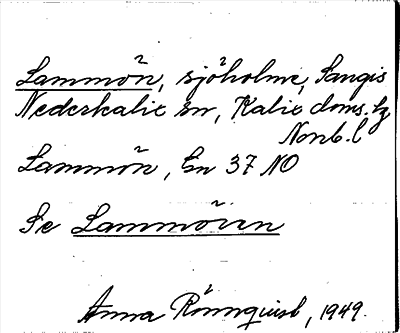 Lammön, sjöholme, Sangis
Nederkalix sn, Kalix doms.lg
Norrb. l
Lammön, Gn 37 NO
Se Lammören
Anna Rönnquist, 1949.